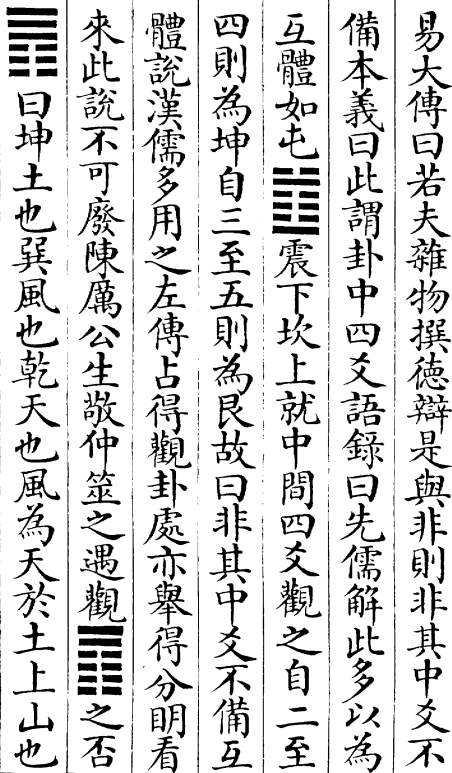 易大傳曰若夫雜物撰德辯是與非則非其中爻不
備本義曰此謂卦中四爻語錄曰先儒解此多以為
互體如屯䷂震下坎上就中間四爻觀之自二至
四則為坤自三至五則為艮故曰非其中爻不備互
體說漢儒多用之左傳占得觀卦處亦舉得分明看
來此說不可廢陳厲公生敬仲筮之遇觀䷓之否
䷋曰坤土也巽風也乾天也風為天於土上山也